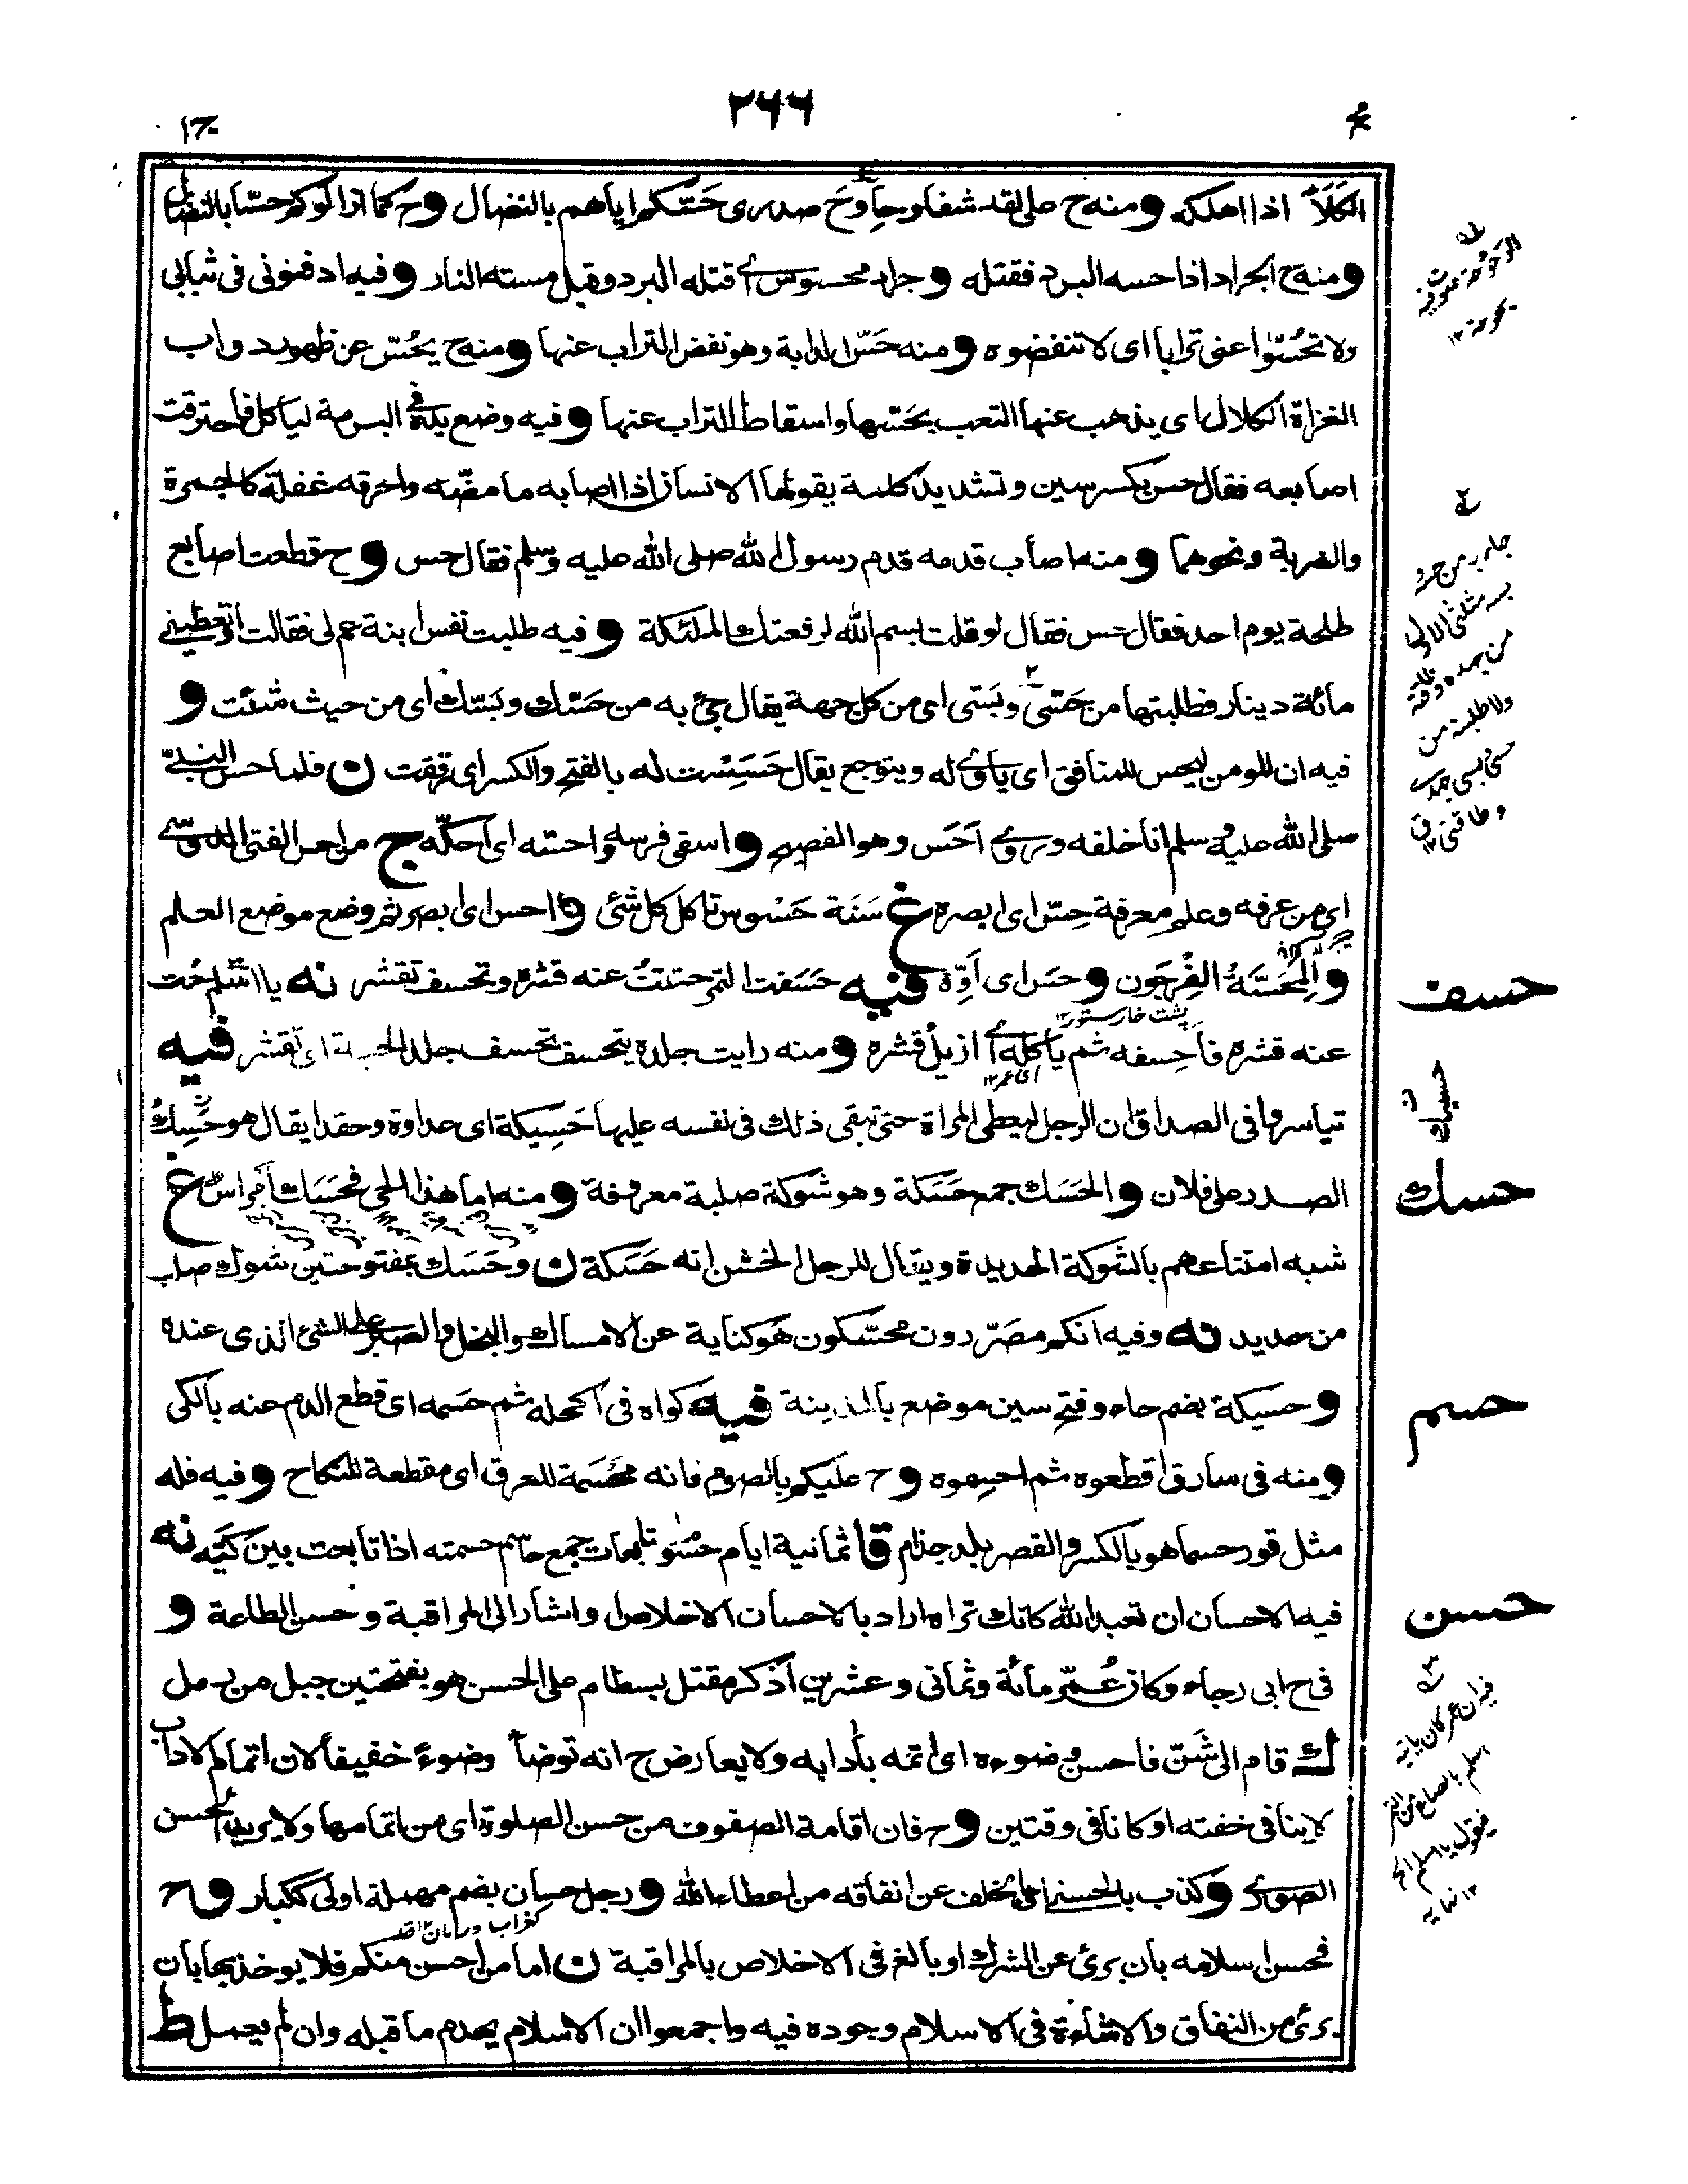 ٢٦٦
الكلأ اذا اهلكه ومنه ح على لقد شفا وحاوح صدرى حسكم اياهم بالنصال وح كما ازالوكم حسا بالنصال
ومنه ح الجراد اذا حسه البرد فقتله وجراد محسوس اى قتله البرد وقيل مسته النار وفيه ادفنونى فى ثيابى
ولا تحسوا عنى ترابا اى لا تنفضوه ومنه حس الدابة وهو نفض التراب عنها ومنه ح يحس عن ظهور دواب
الغزاة الكلال اى يذهب عنها التعب بحسها واسقاط التراب عنها وفيه وضع يده فى البرمة لياكل فاحترقت
اصابعه فقال حس بكسر سين وتشديد كلمة يقولها الانسان اذا اصابه ما مضه واحرقه غفلة كالجمرة
والضربة ونحوهما ومنه اصاب قدمه قدم رسول الله صلى الله عليه وسلم فقال حس وح قطعت اصابع
طلحة يوم احد فقال حس فقال لو قلت بسم الله لرفعتك الملئكة وفيه طلبت نفس ابنة عم لى فقالت او تعطينى
مائة دينار فطلبتها من حسى وبسى اى من كل جهة يقال جئ به من حسك وبسك اى من حيث شئت و
فيه ان المومن ليحس للمنافق اى ياوى له ويتوجع يقال حسست له بالفتح والكسر اى رققت ن فلما حس النبى
صلى الله عليه وسلم انا خلفه وروى احس وهو الفصيح واسقى فرسه واحسه اى احكه ج من احس الفتى الدوسى
اى من عرفه وعلم معرفة حس اى ابصره غ سنة حسوس تاكل كل شئ و احس اى ابصر ثم وضع موضع العلم
والمحسة الفرجون وحس اى اوه فيه حسفت التمر حتتت عنه قشره وتحسف تقشر نه يا اسلم حت
عنه قشره فاحسفه ثم ياكله اى ازيل قشره ومنه رايت جلده يتحسف تحسف جلد الحية اى تقشر فيه
تياسروا فى الصداق ان الرجل ليعطى المراة حتى تبقى ذلك فى نفسه عليها حسيكة اى عداوة وحقدا يقال هو حسك
الصدر على فلان والحسك جمع حسكة وهو شوكة صلبة معروفة ومنه اما هذا الحى فحسك امراس غ
شبه امتناعهم بالشوكة الحديدة ويقال للرجل الخشن انه حسكة ن وحسك بمفتوحتين شوك صلب
من حديد نه وفيه انكم مصررون محسكون هو كناية عن الامساك والبخل والصبر على الشئ الذى عنده
وحسيكة بضم حاء وفتح سين موضع بالمدينة فيه كواه فى اكحله ثم حسمه اى قطع الدم عنه بالكى
ومنه فى سارق اقطعوه ثم احسموه وح عليكم بالصوم فانه محسمة للعرق اى مقطعة للنكاح وفيه فله
مثل قور حسما هو بالكسر والقصر بلد جذام قا ثمانية ايام حسوما تابعات جمع حاسم حسمته اذا تابعت بين كيه نه
فيه الاحسان ان تعبد الله كانك تراه اراد بالاحسان الاخلاص او اشار الى المراقبة وحسن الطاعة و
فى ح ابى رجاء وكان عمر مائة وثمانى وعشرين اذكر مقتل بسطام على الحسن هو بفتحتين جبل من رمل
ك قام الى شن فاحسن وضوءه اى اتمه بادابه ولا يعارض ح انه توضأ وضوءً خفيفا لان اتمام الاداب
لا ينافى خفته او كانا فى وقتين وح فان اقامة الصفوف من حسن الصلوة اى من اتمامها ولا يريد الحسن
الصورى وكذب بالحسنى اى بالخلف عن انفاقه من اعطاء الله ورجل حسان بضم مهملة اولى ككبار وح
فحسن اسلامه بان برئ عن الشرك او بالغ فى الاخلاص بالمراقبة ن اما من احسن منكم فلا يوخذ بها بان
برئ من النفاق والاساءة فى الاسلام وجوده فيه واجمعوا ان الاسلام يهدم ما قبله وان لم يعمل ط
حسف
حسيك
حسك
حسم
حسن
فيه ان عمر كان ياتيه
اسلم بالصاع من التمر
فيقول يا اسلم الخ
١٢ نهايه